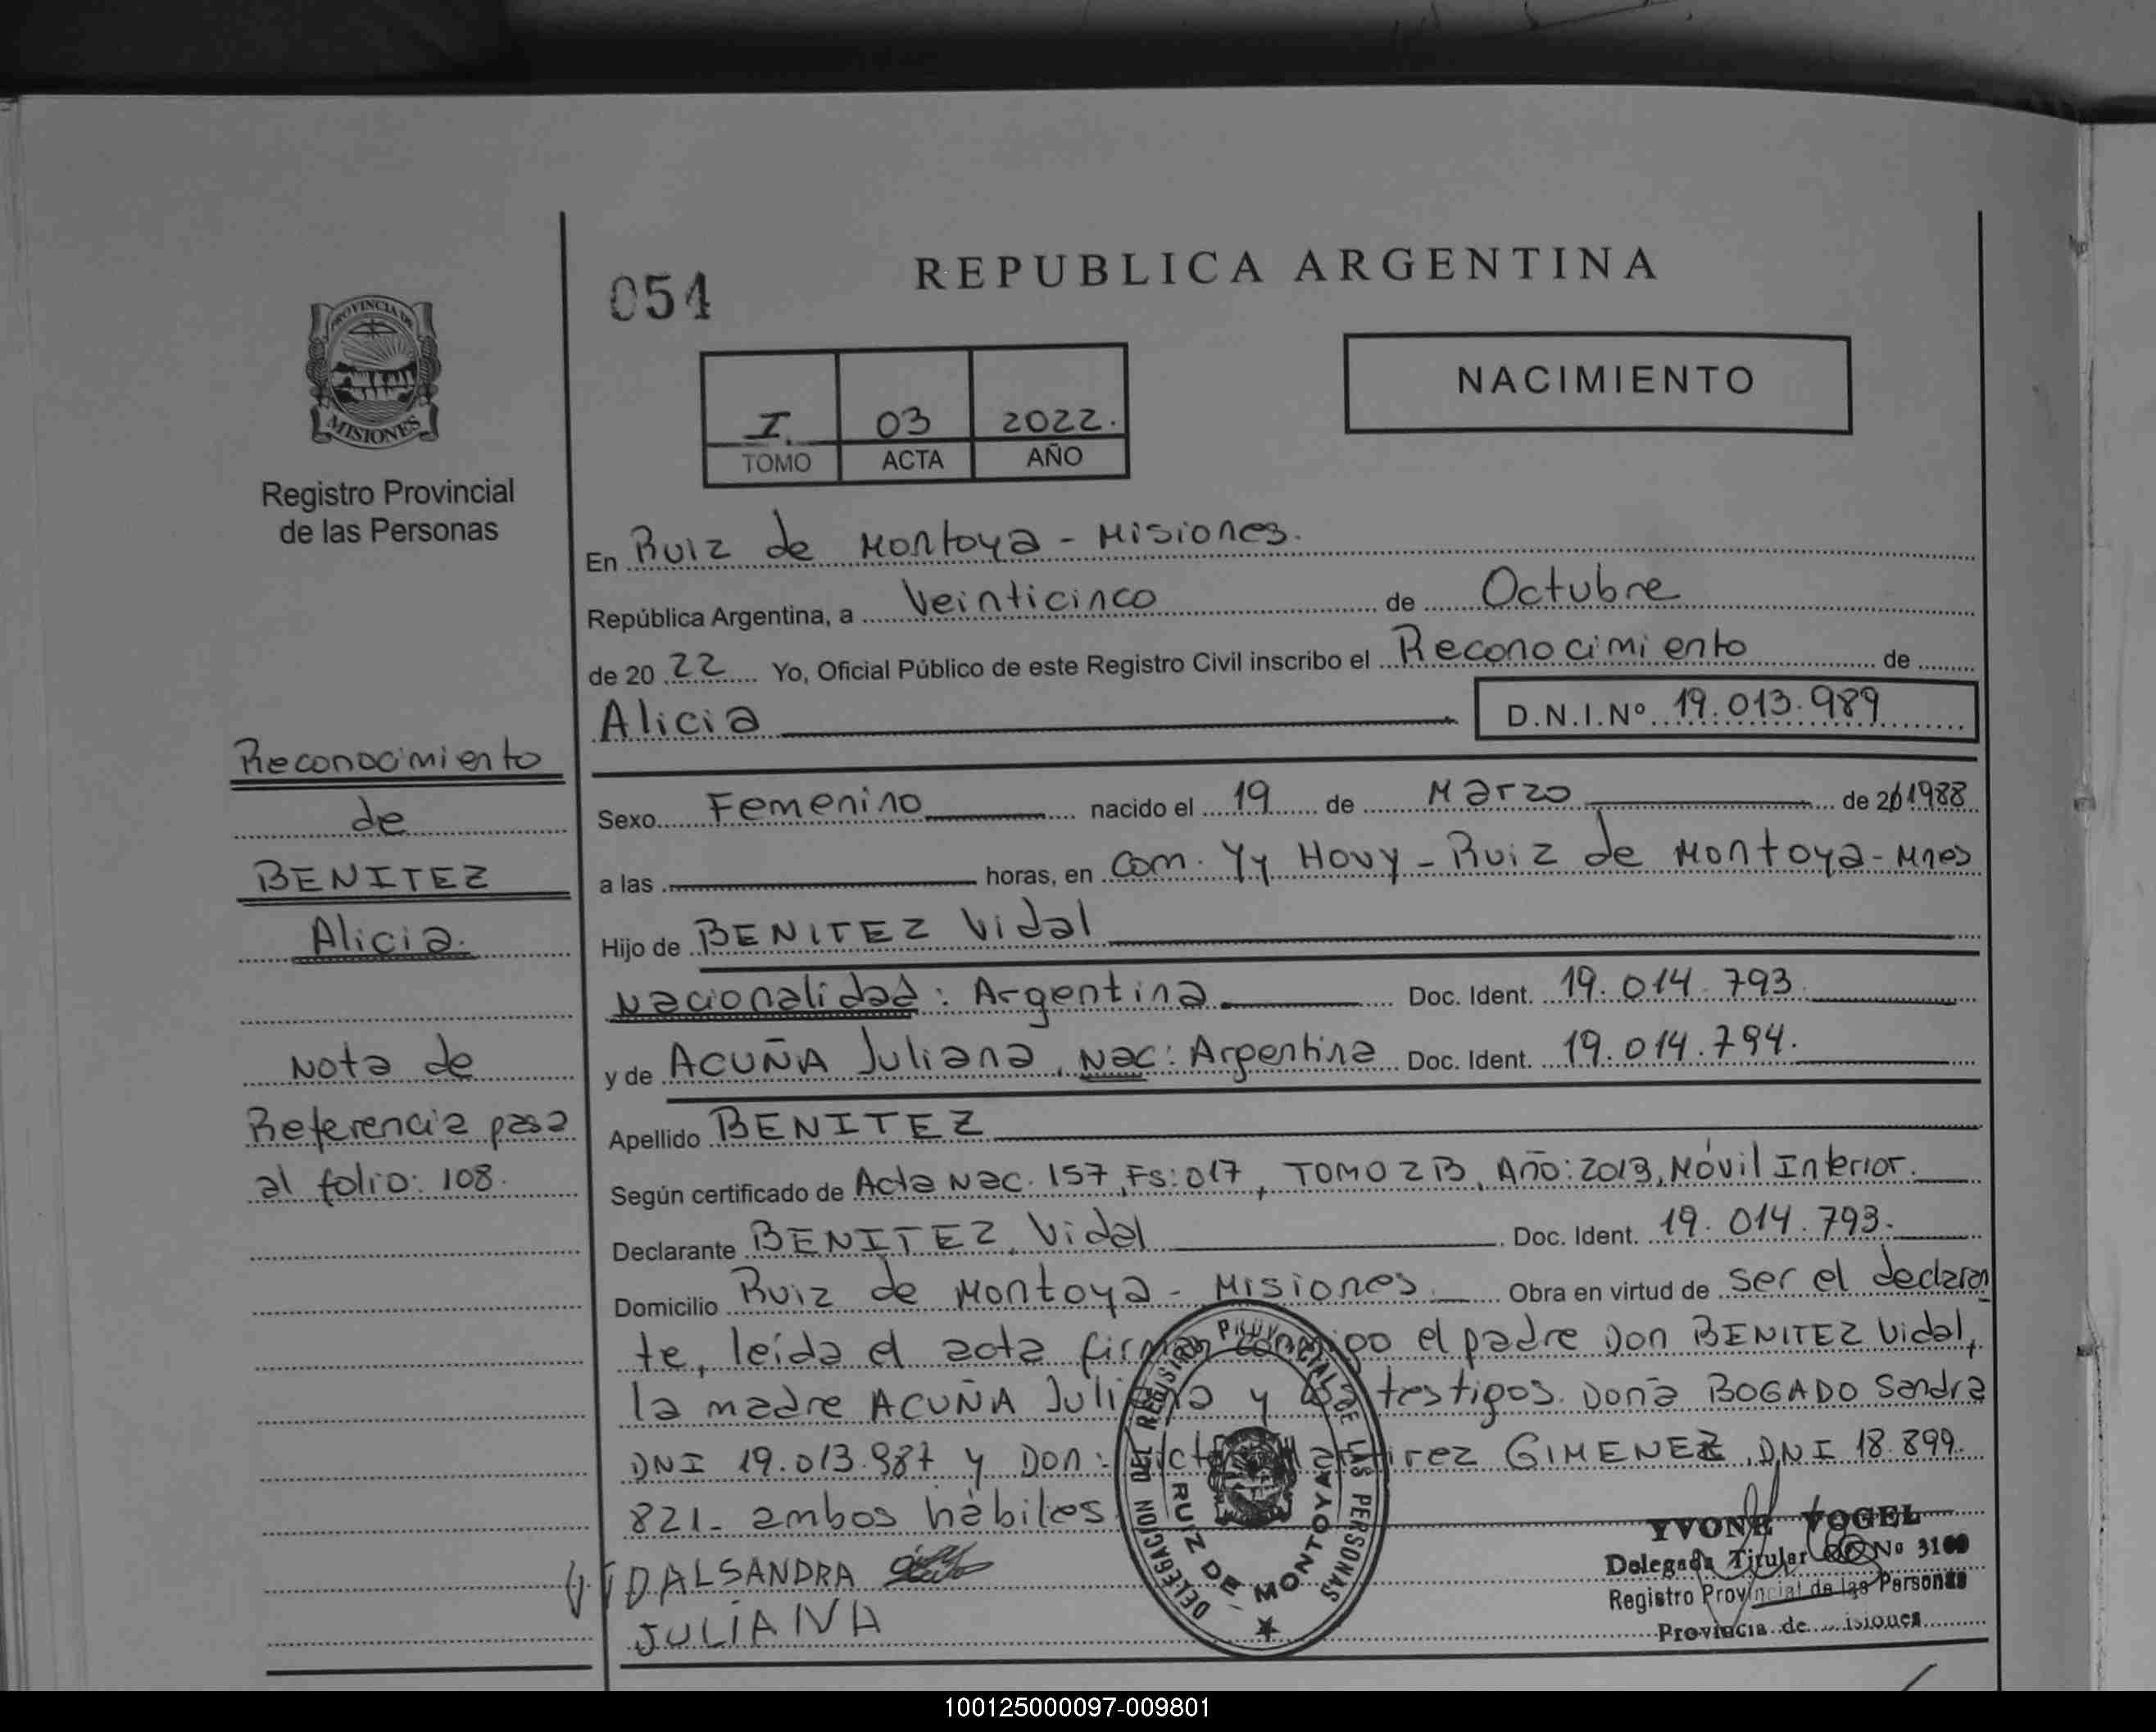 PROVINCIA DE
MISIONES
Registro Provincial
de las Personas
Reconocimiento
de
BENITEZ
Alicia.
Nota de
Referencia pasa
al folio: 108.
054
REPUBLICA ARGENTINA
I. 03 2022.
TOMO ACTA AÑO
NACIMIENTO
En Ruiz de Montoya - Misiones.
República Argentina, a Veinticinco de Octubre
de 20 22 Yo, Oficial Público de este Registro Civil inscribo el Reconocimiento de
Alicia D.N.I.Nº 19.013.989
Sexo Femenino nacido el 19 de Marzo de 20 1988
a las horas, en Com. Yy Hovy - Ruiz de Montoya - Mnes
Hijo de BENITEZ Vidal
Nacionalidad: Argentina Doc. Ident. 19.014.793
y de ACUÑA Juliana, Nac: Argentina Doc. Ident. 19.014.794.
Apellido BENITEZ
Según certificado de Acta Nac. 157, Fs: 017, TOMO 2B, Año: 2013, Móvil Interior.
Declarante BENITEZ, Vidal Doc. Ident. 19.014.793.
Domicilio Ruiz de Montoya - Misiones. Obra en virtud de ser el declaran
te, leída el acta firman conmigo el padre Don BENITEZ Vidal,
la madre ACUÑA Juliana y los testigos. Doña BOGADO Sandra
DNI 19.013.987 y Don: GIMENEZ, DNI 18.899.
821- ambos hábiles
VIDAL SANDRA
JULIANA
DELEGACION DEL REGISTRO PROVINCIAL DE LAS PERSONAS
RUIZ DE MONTOYA
YVONE VOGEL
Delegada Titular Nº
Registro Provincial de las Personas
Provincia de Misiones
100125000097-009801